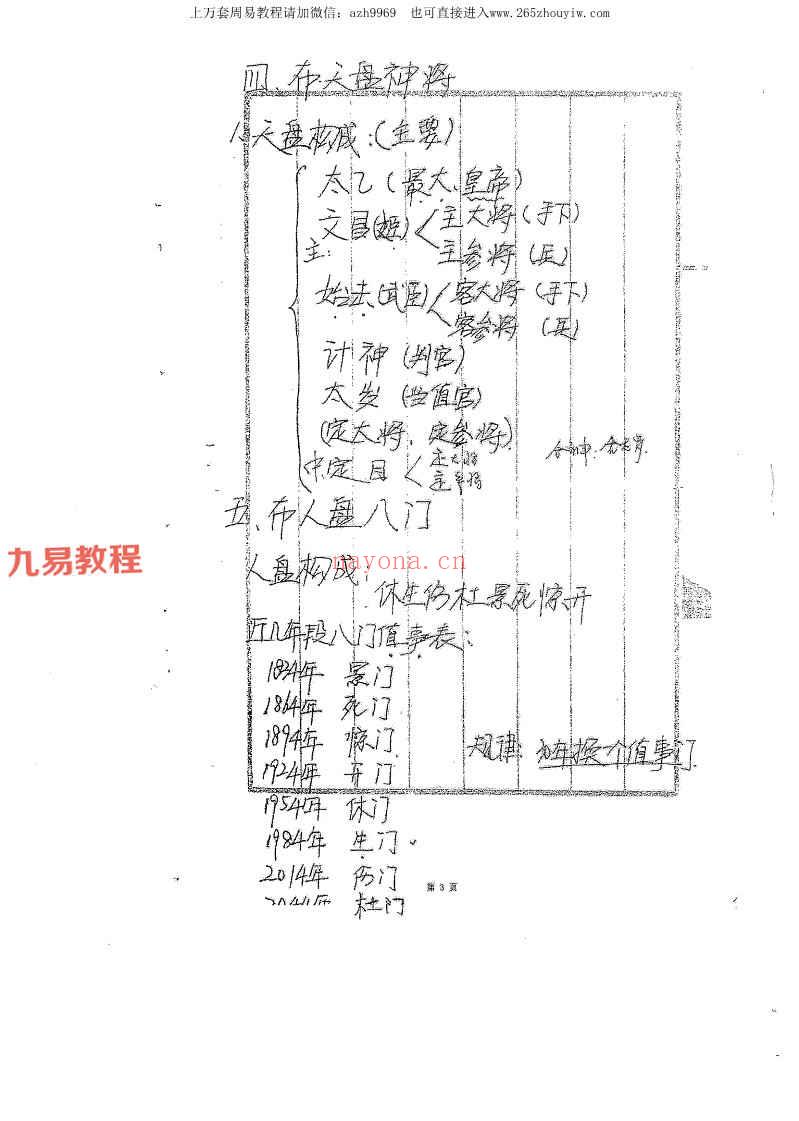 上万套周易教程请加微信：azh9969 也可直接进入www.265zhouyiw.com
四、布天盘神将
1、天盘构成：(主要)
太乙(最大、皇帝)
文昌 主大将(手下)
主： 主参将(兵)
始击(武臣) 客大将(手下)
客参将(兵)
计神(判官)
太岁(当值官)
(定大将、定参将)
定目 定大将
定参将
五、布人盘八门
九易教程
nayona.cn
人盘构成：
休生伤杜景死惊开
近几年段八门值事表：
1834年 景门
1864年 死门
1894年 惊门
规律：30年换一个值事门
1924年 开门
1954年 休门
1984年 生门
2014年 伤门
第 3 页
杜门